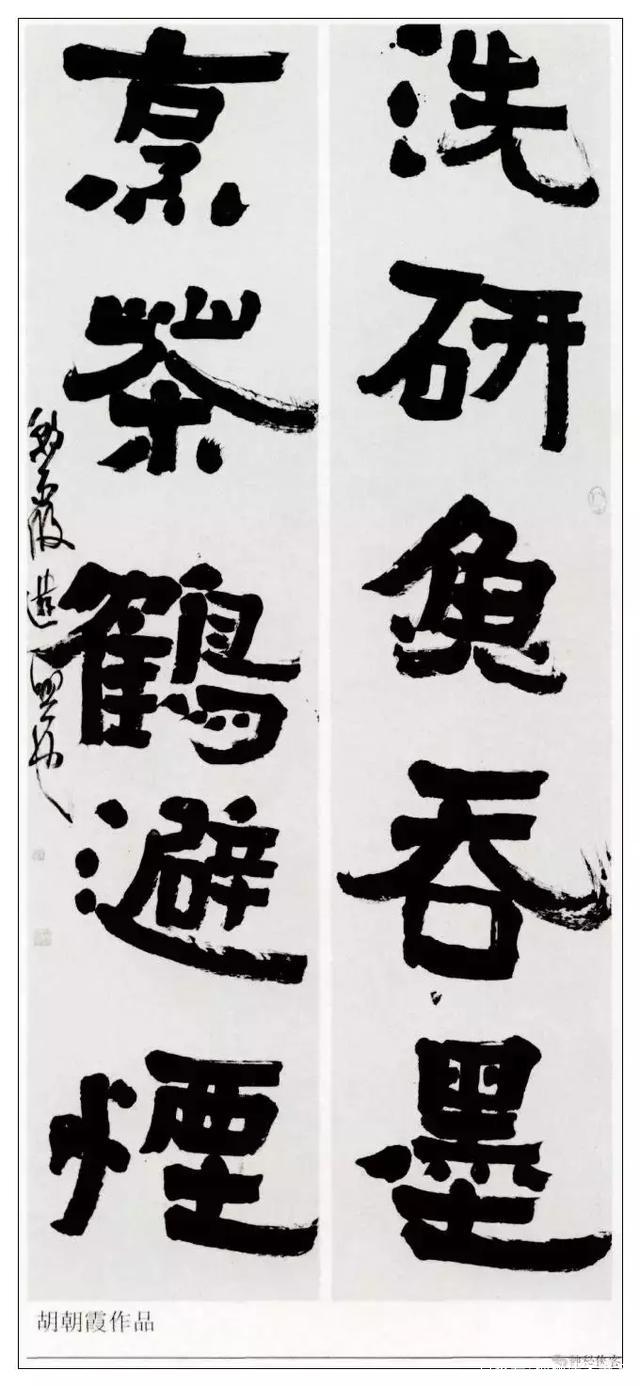 洗研魚吞墨
烹茶鶴避煙
胡朝霞作品